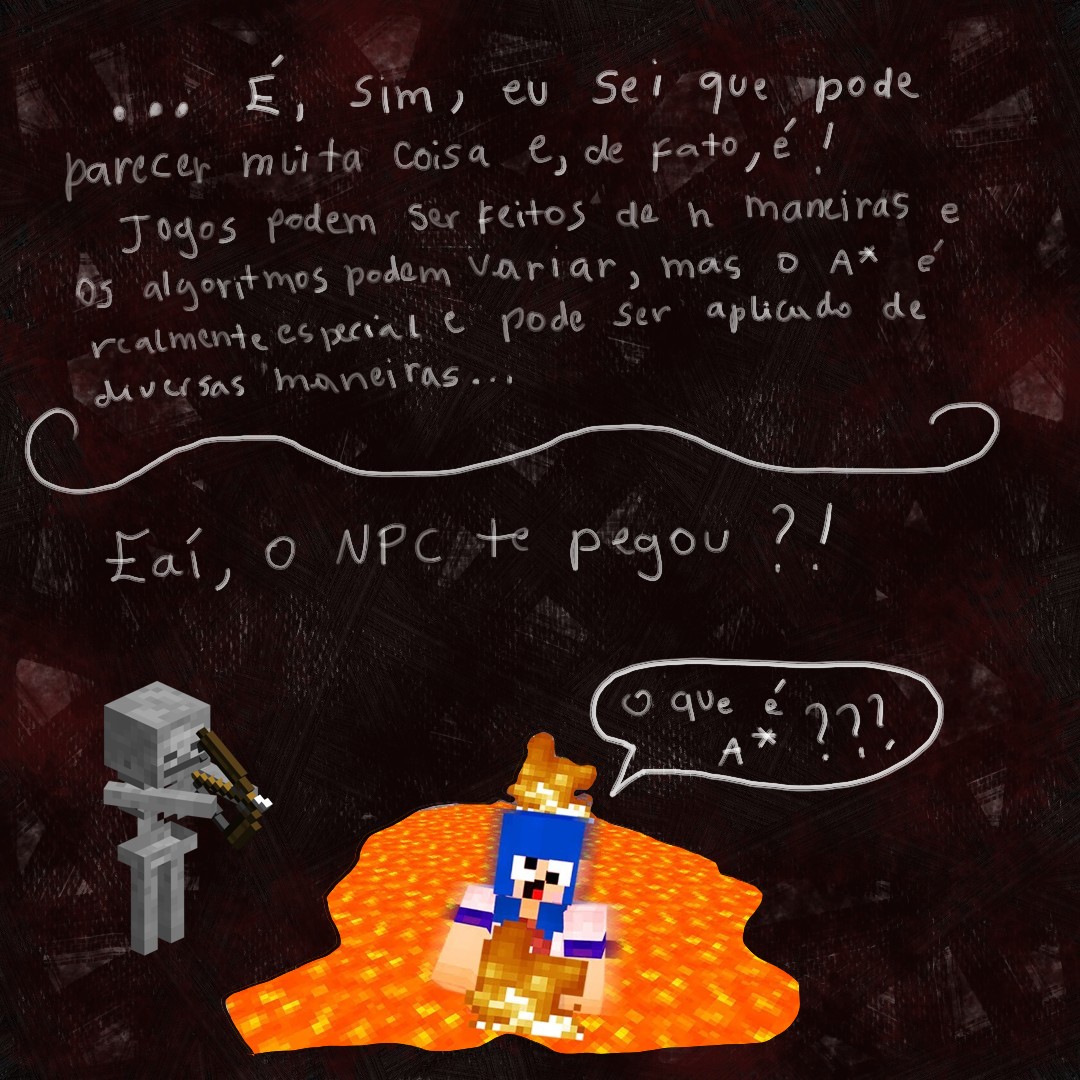 ... É, sim, eu sei que pode
parecer muita coisa e, de fato, é!
Jogos podem ser feitos de n maneiras e
os algoritmos podem variar, mas o A* é
realmente especial e pode ser aplicado de
diversas maneiras...
Eaí, o NPC te pegou?!
O que é
A* ???